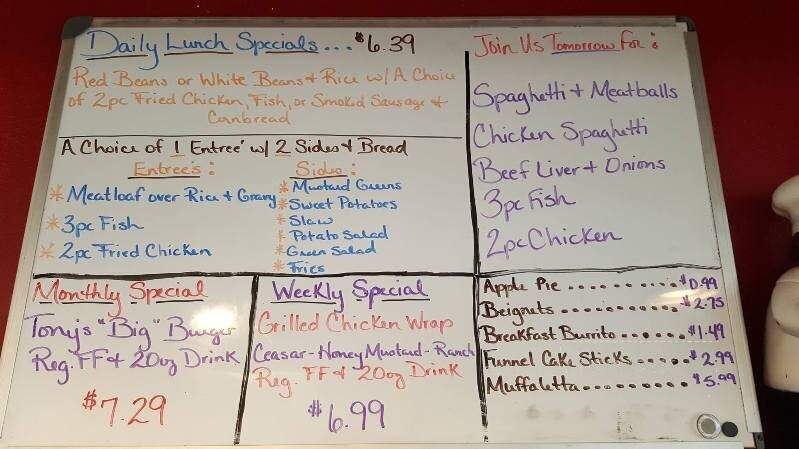 Daily Lunch Specials... $6.39
Red Beans or White Beans + Rice w/ A Choice
of 2pc Fried Chicken, Fish, or Smoked Sausage +
Cornbread
A Choice of 1 Entree' w/ 2 Sides + Bread
Entree's :
* Meatloaf over Rice + Gravy
* 3pc Fish
* 2pc Fried Chicken
Sides :
* Mustard Greens
* Sweet Potatoes
* Slaw
* Potato Salad
* Green Salad
* Fries
Join Us Tomorrow For :
Spaghetti + Meatballs
Chicken Spaghetti
Beef Liver + Onions
3pc Fish
2pc Chicken
Monthly Special
Tony's "Big" Burger
Reg. FF + 20oz Drink
$7.29
Weekly Special
Grilled Chicken Wrap
Ceasar - Honey Mustard - Ranch
Reg. FF + 20oz Drink
$6.99
Apple Pie .......... $0.99
Beignets .......... $2.75
Breakfast Burrito ...... $1.49
Funnel Cake Sticks ..... $2.99
Muffaletta ......... $5.99